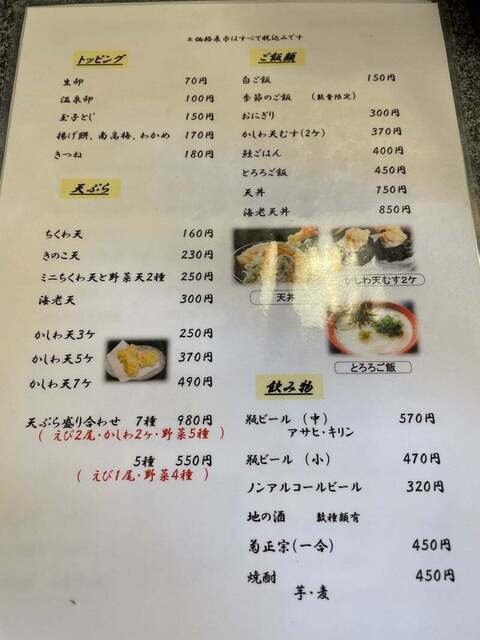 ※価格表示はすべて税込みです
トッピング
生卵 70円
温泉卵 100円
玉子とじ 150円
揚げ餅、南高梅、わかめ 170円
きつね 180円
天ぷら
ちくわ天 160円
きのこ天 230円
ミニちくわ天と野菜天2種 250円
海老天 300円
かしわ天3ケ 250円
かしわ天5ケ 370円
かしわ天7ケ 490円
天ぷら盛り合わせ 7種 980円
(えび2尾・かしわ2ケ・野菜5種)
5種 550円
(えび1尾・野菜4種)
ご飯類
白ご飯 150円
季節のご飯 (数量限定)
おにぎり 300円
かしわ天むす(2ケ) 370円
鮭ごはん 400円
とろろご飯 450円
天丼 750円
海老天丼 850円
天丼
かしわ天むす2ケ
とろろご飯
飲み物
瓶ビール (中) 570円
アサヒ・キリン
瓶ビール (小) 470円
ノンアルコールビール 320円
地の酒 数種類有
菊正宗(一合) 450円
焼酎 450円
芋・麦